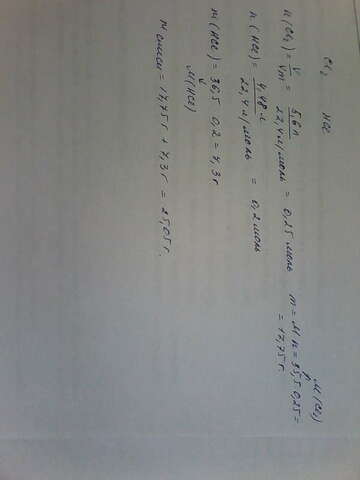 Cl₂ HCl
n(Cl₂) = V/Vm = 5,6 л/22,4 л/моль = 0,25 моль m = M n = 35,5 0,25 = 17,75 г.
M(Cl₂)
n(HCl) = 4,48 л/22,4 л/моль = 0,2 моль
m(HCl) = 36,5 0,2 = 7,3 г.
M(HCl)
m смеси = 17,75 г + 7,3 г = 25,05 г.